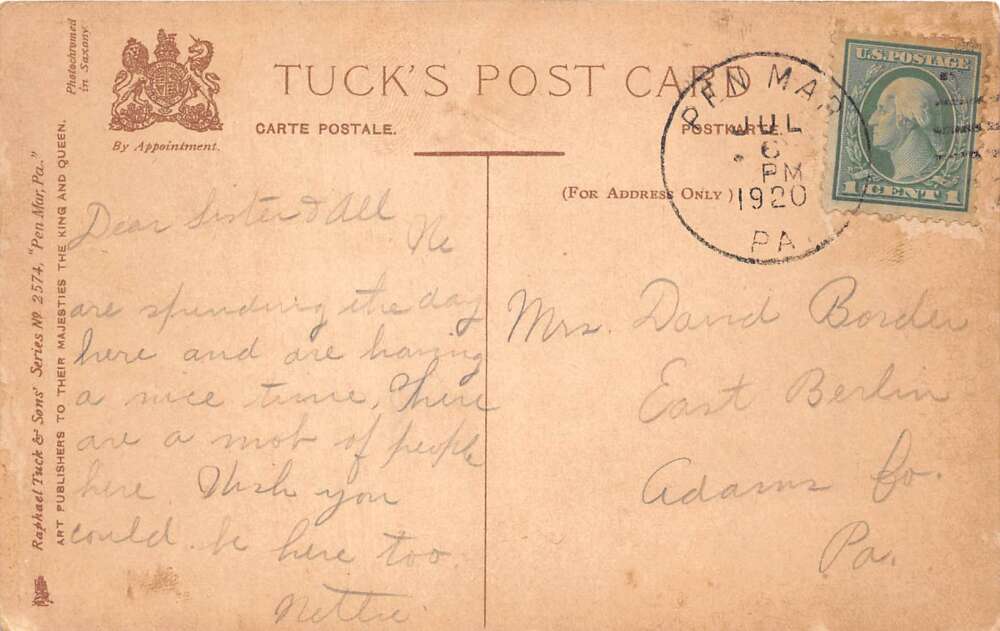 Photochromed
in Saxony
By Appointment.
TUCK'S POST CARD
CARTE POSTALE.
POSTKARTE.
(FOR ADDRESS ONLY)
PEN MAR
JUL
6
PM
1920
PA
U.S. POSTAGE
1 CENT 1
Raphael Tuck & Sons' Series No 2574, "Pen Mar, Pa."
ART PUBLISHERS TO THEIR MAJESTIES THE KING AND QUEEN.
Dear Sister & All
We
are spending the day
here and are having
a nice time. There
are a mob of people
here. Wish you
could be here too.
Nettie.
Mrs. David Border
East Berlin
Adams Co.
Pa.